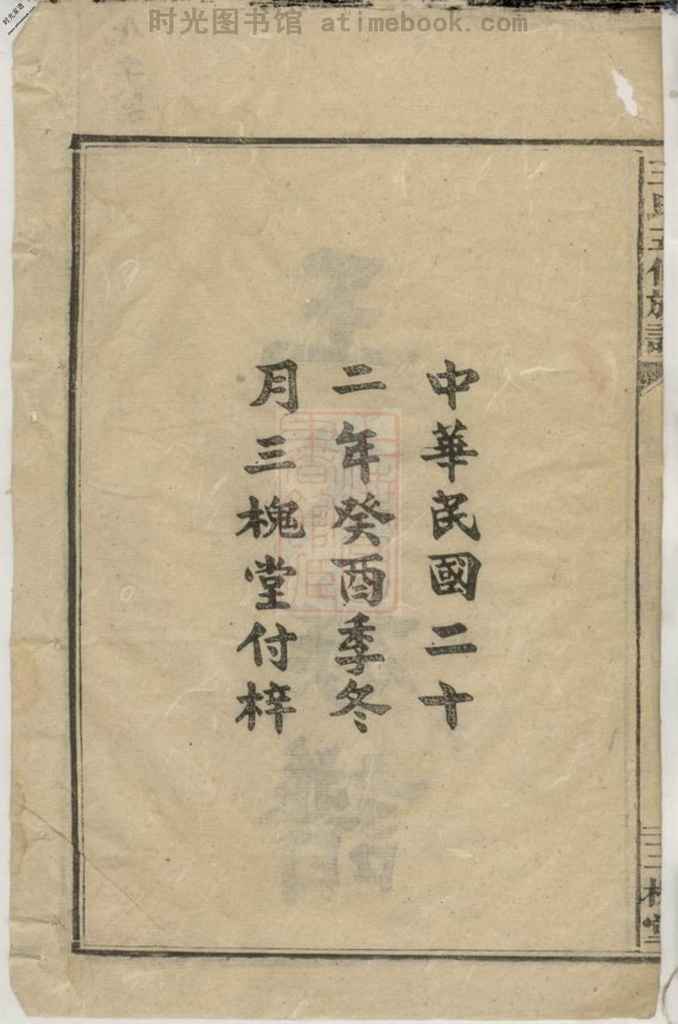 时光图书馆 atimebook.com
中華民國二十
二年癸酉季冬
月三槐堂付梓